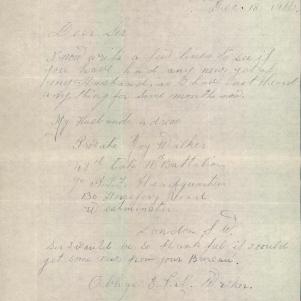 Dec. 18. 1916
Dear Sir
I now write a few lines to see if
you have had any news yet of
my Husband, as I have not heard
anything for some months now.
My Husband adress
Private Roy Walker
47th late 16th Battalion
A.I.F. Headquarters
130 Horseferry Road
Westminster
London S.W.
Sir I would be so thankful if I could
get some news from your Bureau.
Oblige